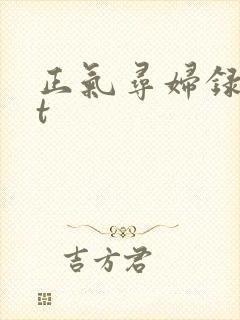 正氣尋婦録
t
吉方君